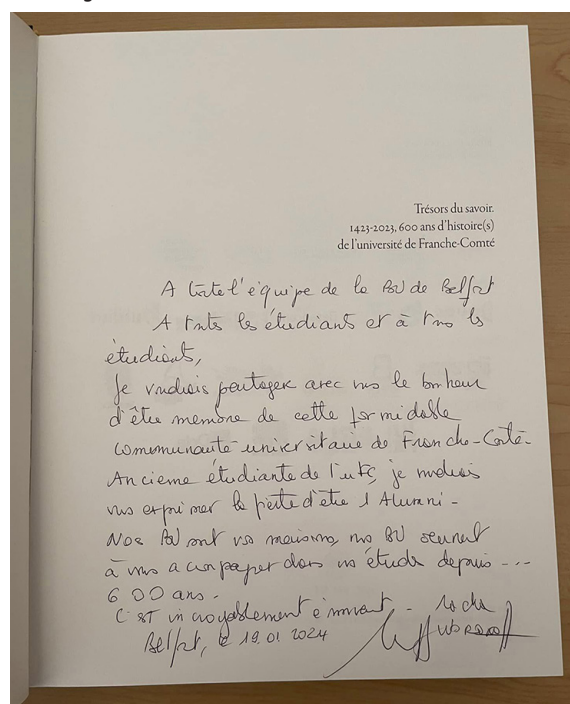 Trésors du savoir.
1423-2023, 600 ans d'histoire(s)
de l'université de Franche-Comté
A toute l'équipe de la BU de Belfort
A toutes les étudiants et à tous les
étudiants,
Je voudrais partager avec vous le bonheur
d'être membre de cette formidable
communauté universitaire de Franche-Comté-
Ancienne étudiante de l'UFC, je voudrais
vous exprimer la fierté d'être 1 Alumni -
Nos BU sont vos maisons, nos BU servent
à vous accompagner dans vos études depuis ...
600 ans.
C'est incroyablement émouvant -
Belfort, le 19.01.2024